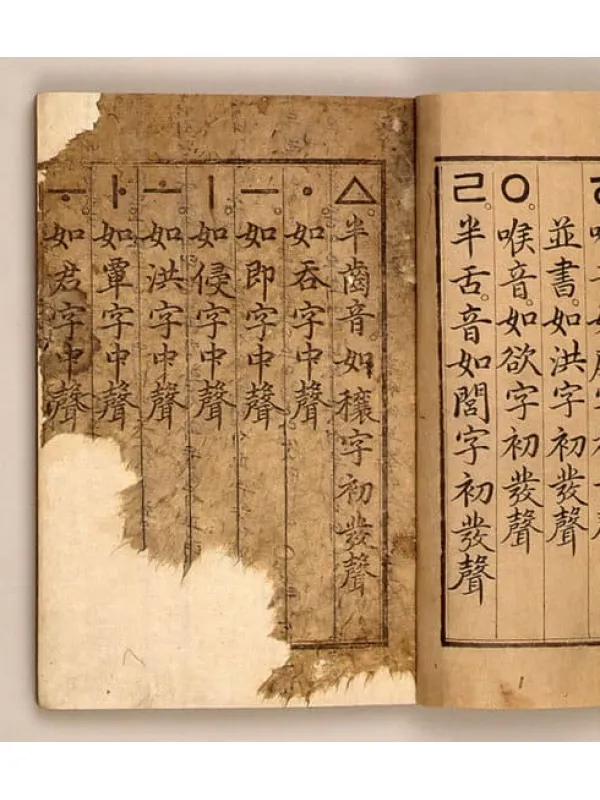 並書。如洪字初發聲
ㅇ。喉音。如欲字初發聲
ㄹ。半舌音。如閭字初發聲
ㅿ。半齒音。如穰字初發聲
ㆍ。如吞字中聲
ㅡ。如即字中聲
ㅣ。如侵字中聲
ㅗ。如洪字中聲
ㅏ。如覃字中聲
ㅜ。如君字中聲